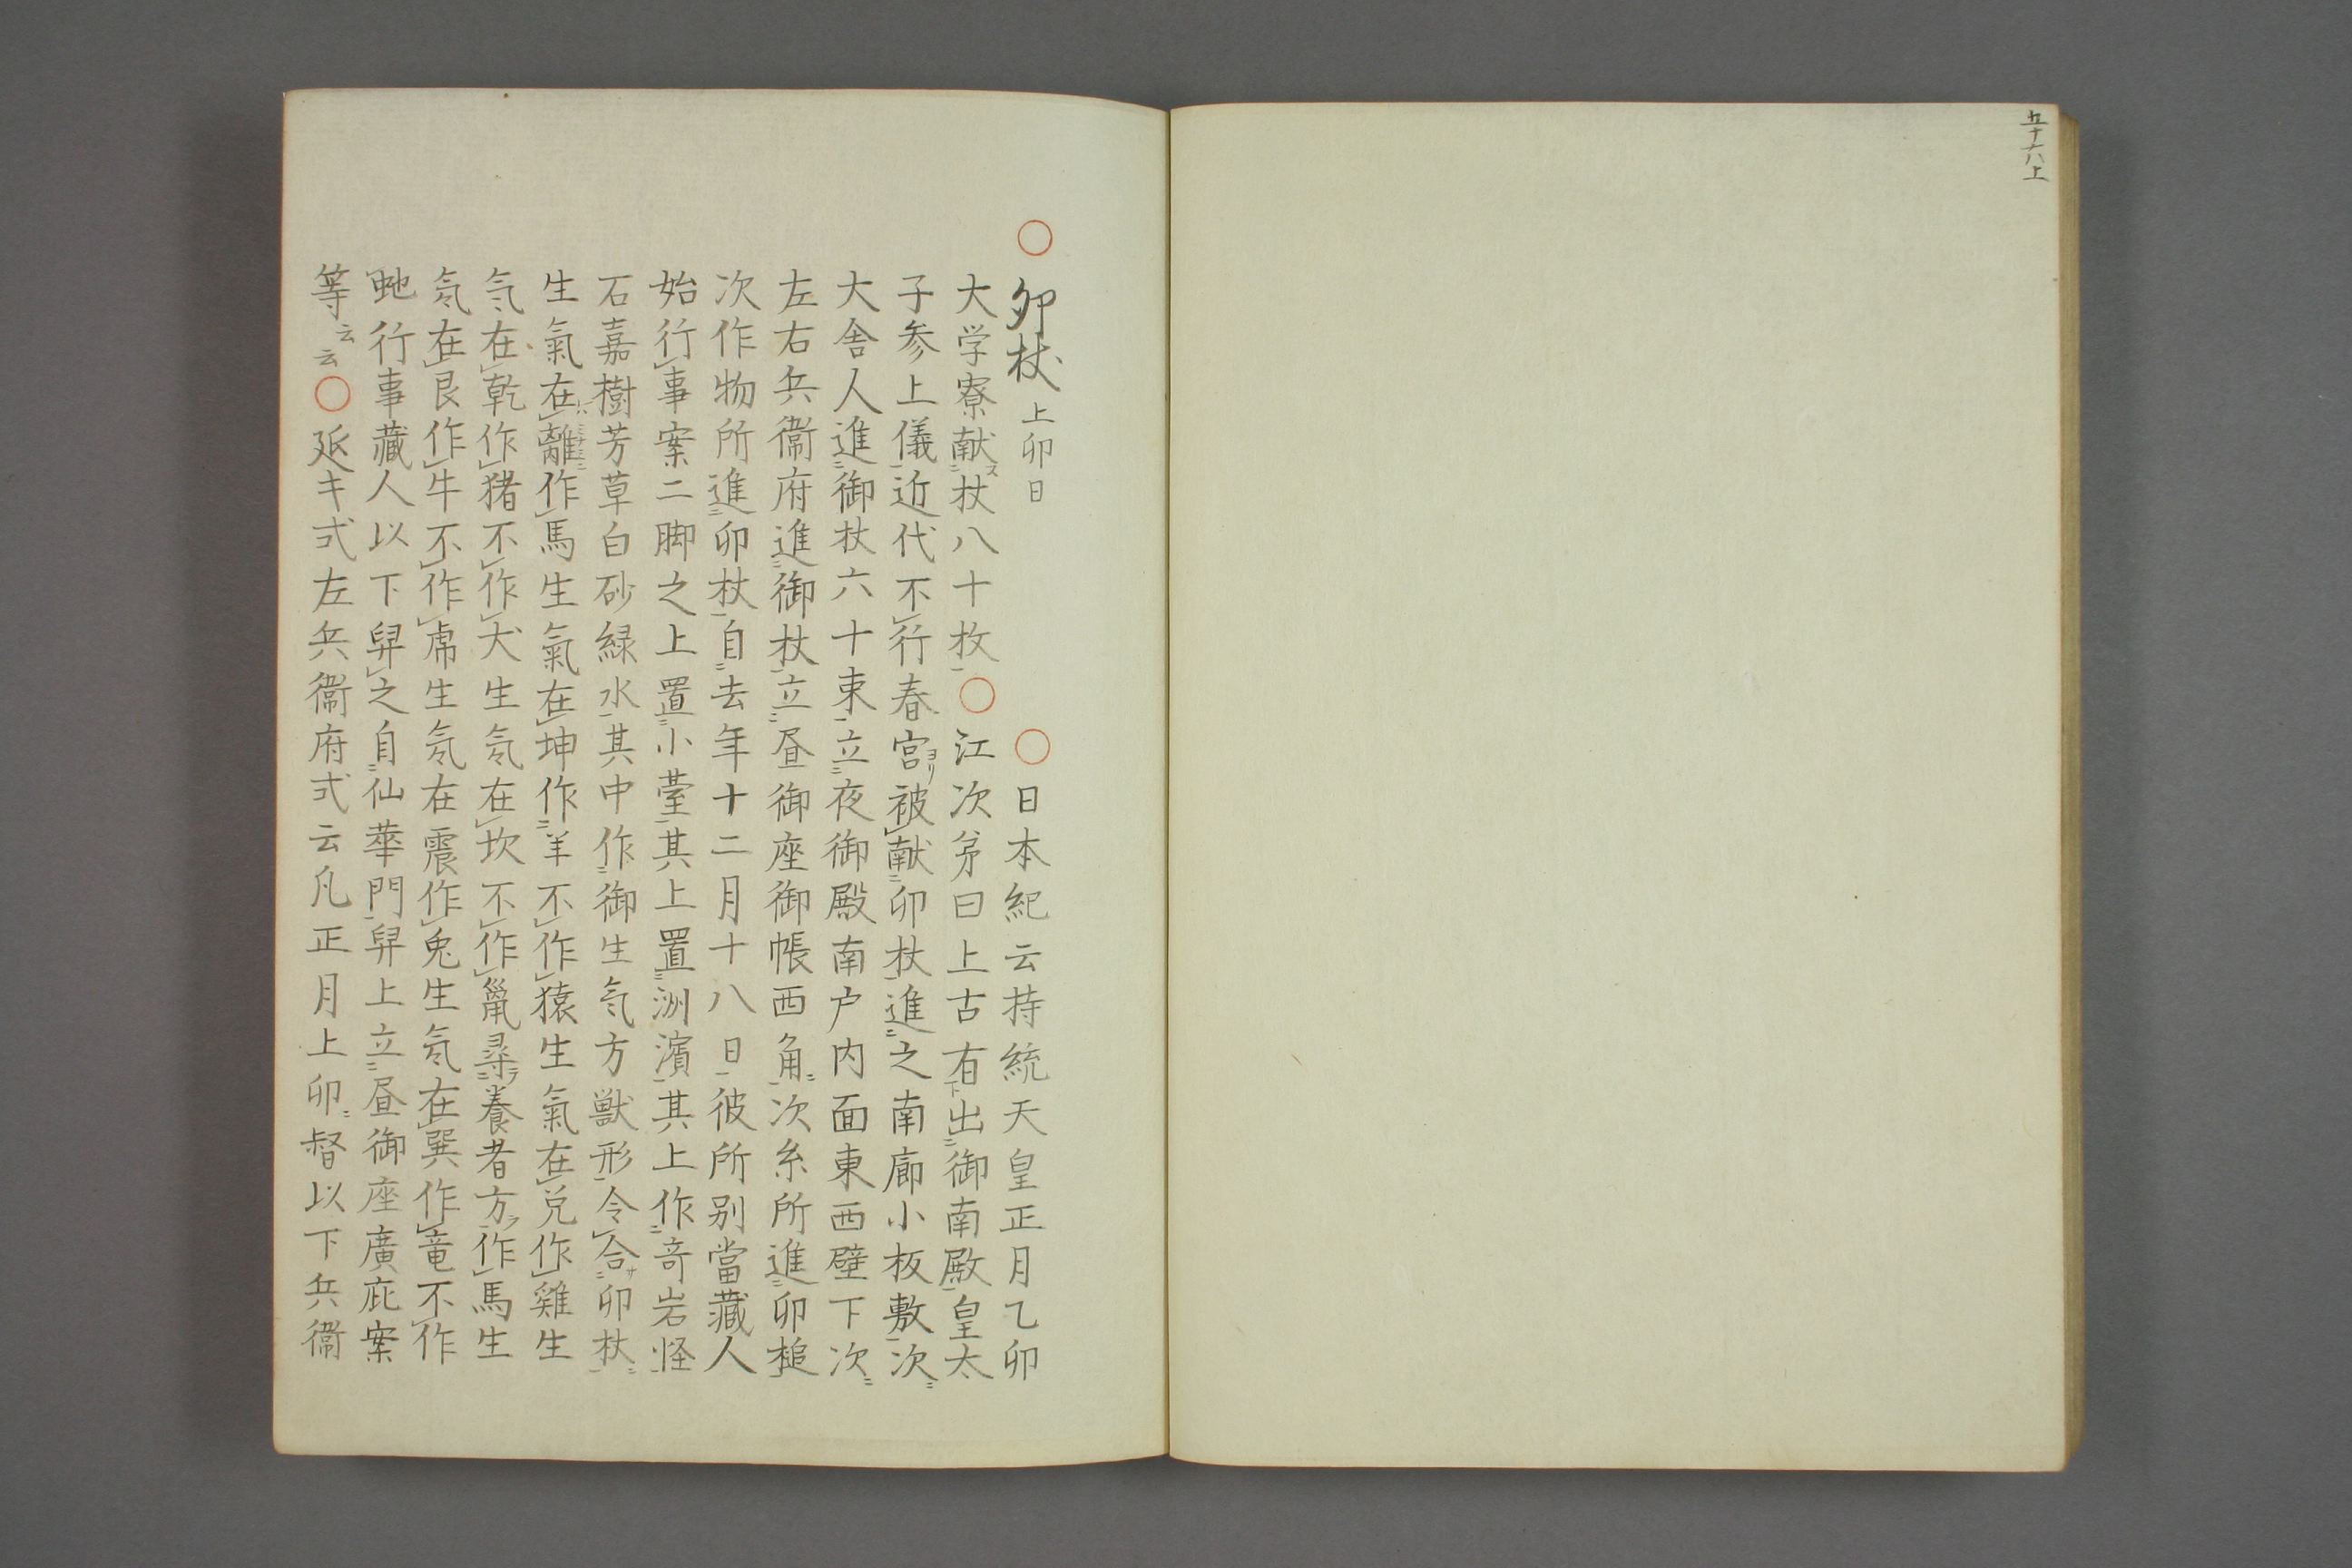 五十六上
○卯杖上卯日 ○日本紀云持統天皇正月乙卯
大学寮献杖八十枚○江次㐧曰上古有出御南殿皇太
子参上儀近代不行春宮ヨリ被献卯杖進之南廊小板敷次
大舎人進御杖六十束立夜御殿南户内面東西壁下次
左右兵衞府進御杖立昼御座御帳西角次糸所進卯槌
次作物所進卯杖自去年十二月十八日彼所别當藏人
始行事案二脚之上置小臺其上置洲濱其上作奇岩怪
石嘉樹芳草白砂緑水其中作御生気方獣形令合卯杖
生氣在離作馬生氣在坤作羊不作猿生氣在兑作雞生
気在乾作猪不作犬生気在坎不作鼠尋養者方作馬生
気在艮作牛不作虎生気在震作兎生気在巽作竜不作
虵行事藏人以下舁之自仙華門舁上立昼御座廣庇案
等云云○延キ式左兵衞府式云凡正月上卯督以下兵衞